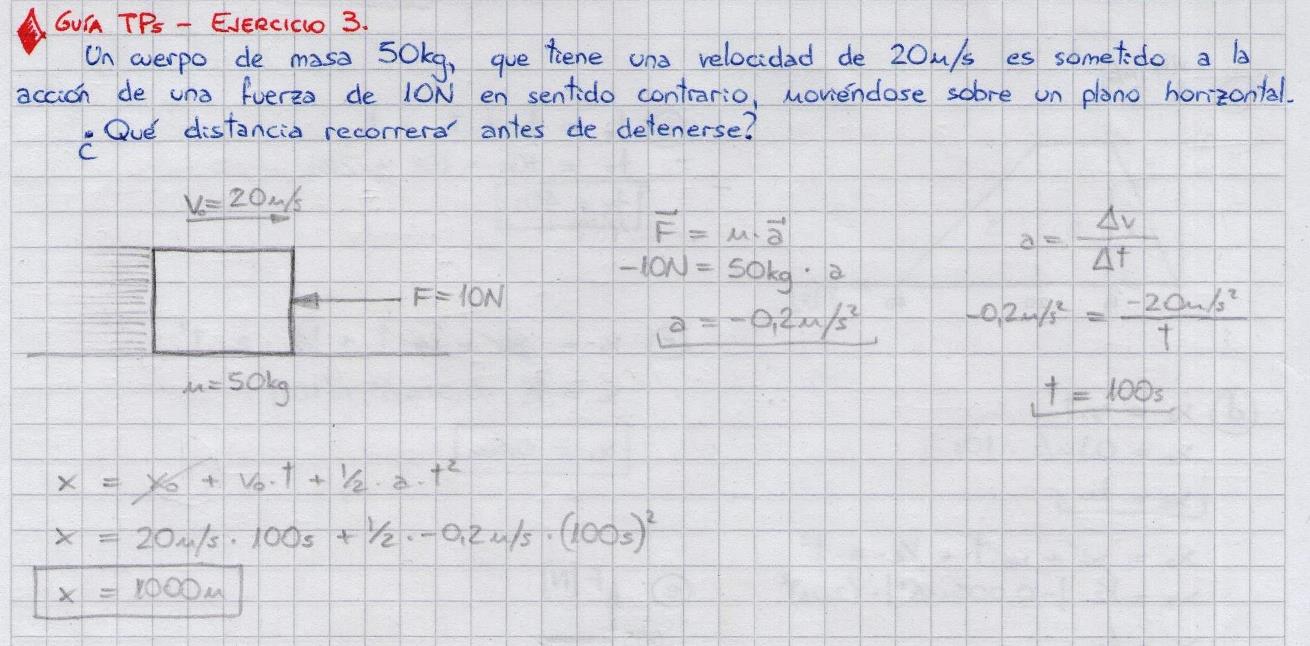 GUÍA TPs - EJERCICIO 3.
Un cuerpo de masa 50kg, que tiene una velocidad de 20m/s es sometido a la
acción de una fuerza de 10N en sentido contrario, moviéndose sobre un plano horizontal.
¿Qué distancia recorrerá antes de detenerse?
V₀= 20m/s
F=10N
m=50kg
F⃗ = m·a⃗
-10N = 50kg · a
a = -0,2m/s²
a = Δv/Δt
-0,2m/s² = -20m/s²/t
t = 100s
x = x₀ + v₀·t + ½·a·t²
x = 20m/s · 100s + ½·-0,2m/s·(100s)²
x = 1000m